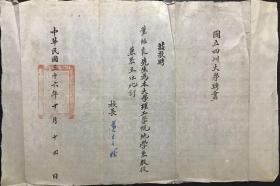 國立四川大學聘書
茲敦聘
先生為本大學理工學院地學系教授
兼系主任此訂
校長
中華民國三十六年十月十日